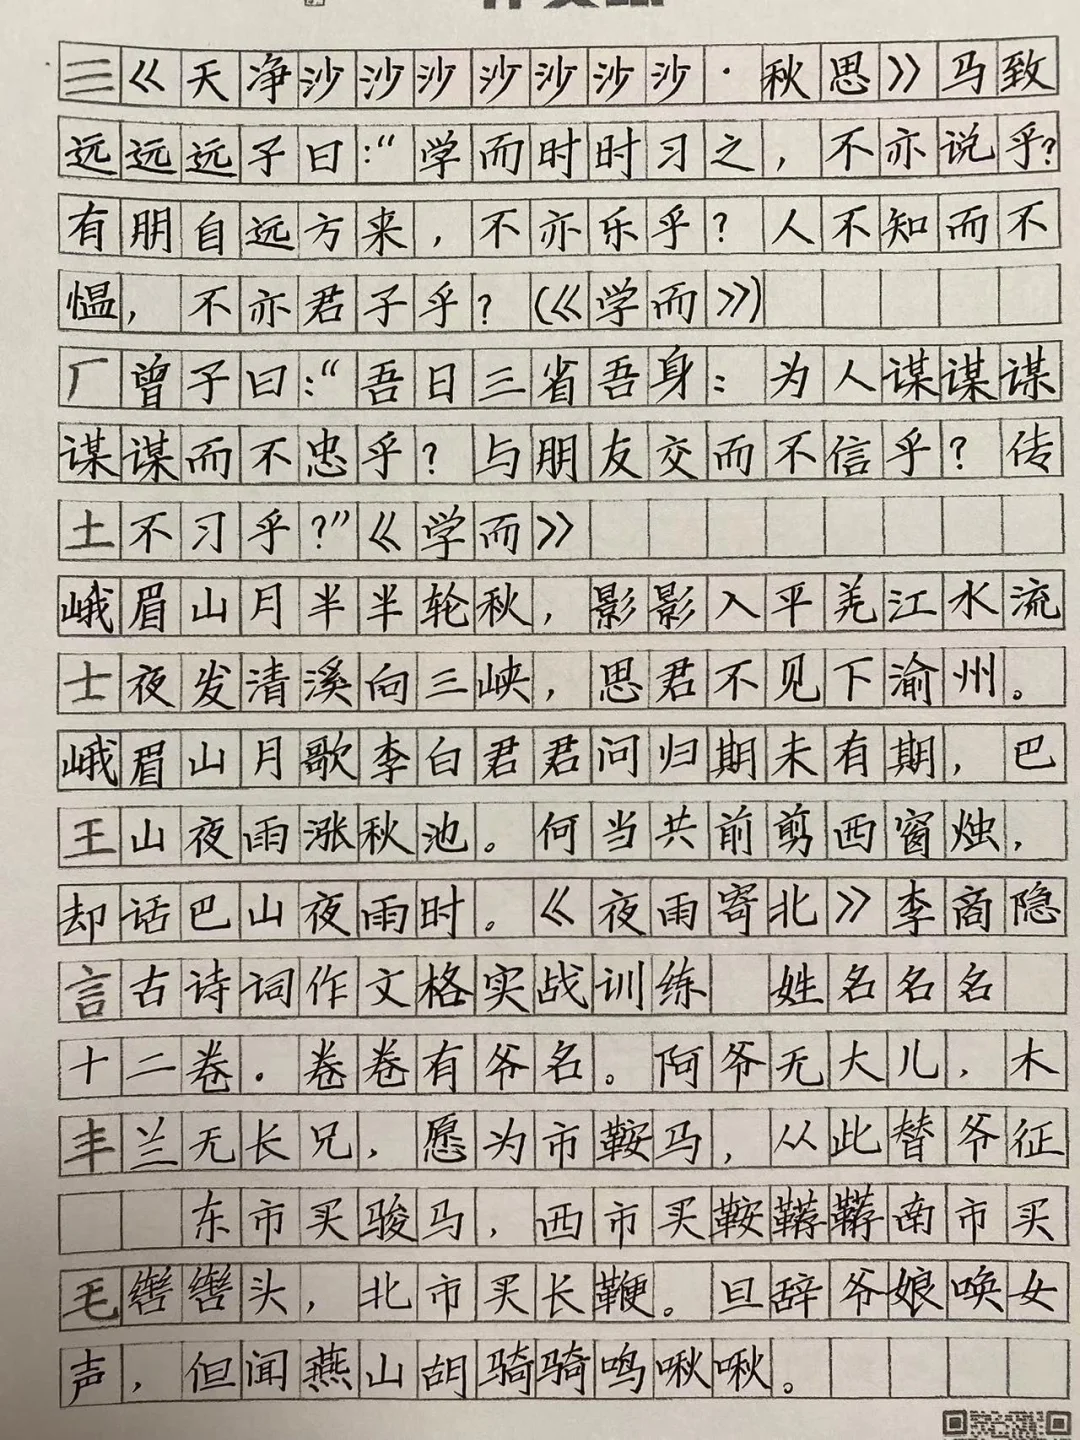 三《天净沙沙沙沙沙沙沙·秋思》马致
远远远子曰:“学而时时习之，不亦说乎?
有朋自远方来，不亦乐乎？人不知而不
愠，不亦君子乎？(《学而》)
厂曾子曰:“吾日三省吾身：为人谋谋谋
谋谋而不忠乎？与朋友交而不信乎？传
土不习乎?”《学而》
峨眉山月半半轮秋，影影入平羌江水流
士夜发清溪向三峡，思君不见下渝州。
峨眉山月歌李白君君问归期未有期，巴
王山夜雨涨秋池。何当共前剪西窗烛，
却话巴山夜雨时。《夜雨寄北》李商隐
言古诗词作文格实战训练 姓名名名
十二卷．卷卷有爷名。阿爷无大儿，木
丰兰无长兄，愿为市鞍马，从此替爷征
东市买骏马，西市买鞍鞯鞯南市买
毛辔辔头，北市买长鞭。旦辞爷娘唤女
声，但闻燕山胡骑骑鸣啾啾。